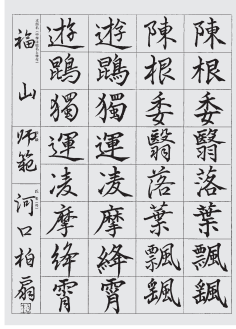 陳根委翳落葉飄颻
陳根委翳落葉飄颻
遊鵾獨運凌摩絳霄
遊鵾獨運凌摩絳霄
福山 师範 河口柏扇